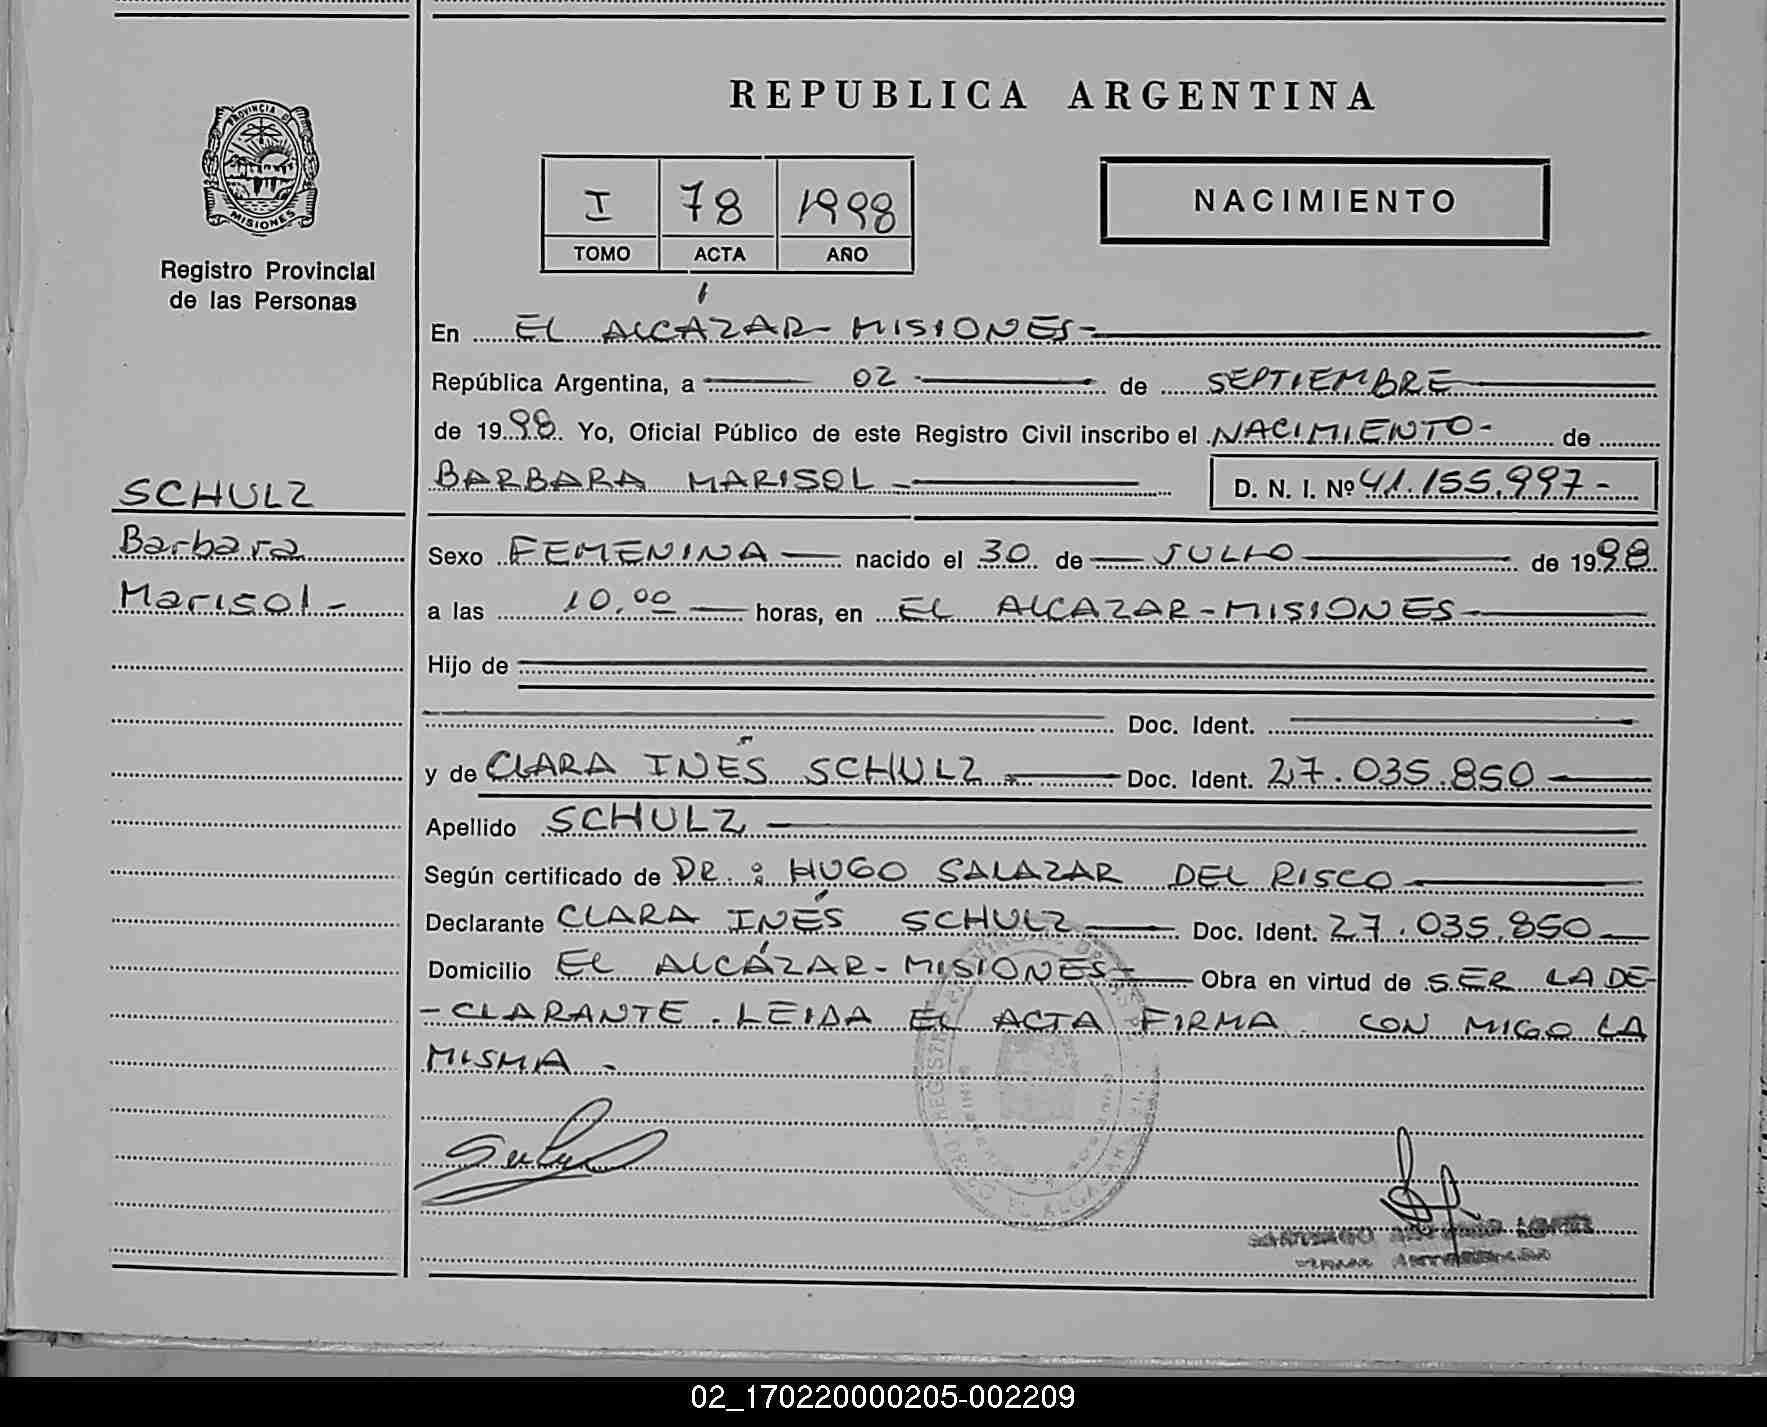 REPUBLICA ARGENTINA
PROVINCIA DE
MISIONES
Registro Provincial
de las Personas
I 78 1998
TOMO ACTA AÑO
NACIMIENTO
En EL ALCÁZAR - MISIONES -
República Argentina, a 02 de SEPTIEMBRE
de 1998. Yo, Oficial Público de este Registro Civil inscribo el NACIMIENTO - de
BARBARA MARISOL - D. N. I. Nº 41.155.997 -
SCHULZ
Barbara
Marisol -
Sexo FEMENINA nacido el 30 de JULIO de 1998.
a las 10.00 horas, en EL ALCAZAR - MISIONES
Hijo de
Doc. Ident.
y de CLARA INÉS SCHULZ Doc. Ident. 27.035.850
Apellido SCHULZ
Según certificado de DR.: HUGO SALAZAR DEL RISCO
Declarante CLARA INÉS SCHULZ Doc. Ident. 27.035.850
Domicilio EL ALCÁZAR - MISIONES - Obra en virtud de SER LA DE-
- CLARANTE. LEIDA EL ACTA FIRMA CON MIGO LA
MISMA -
02_170220000205-002209